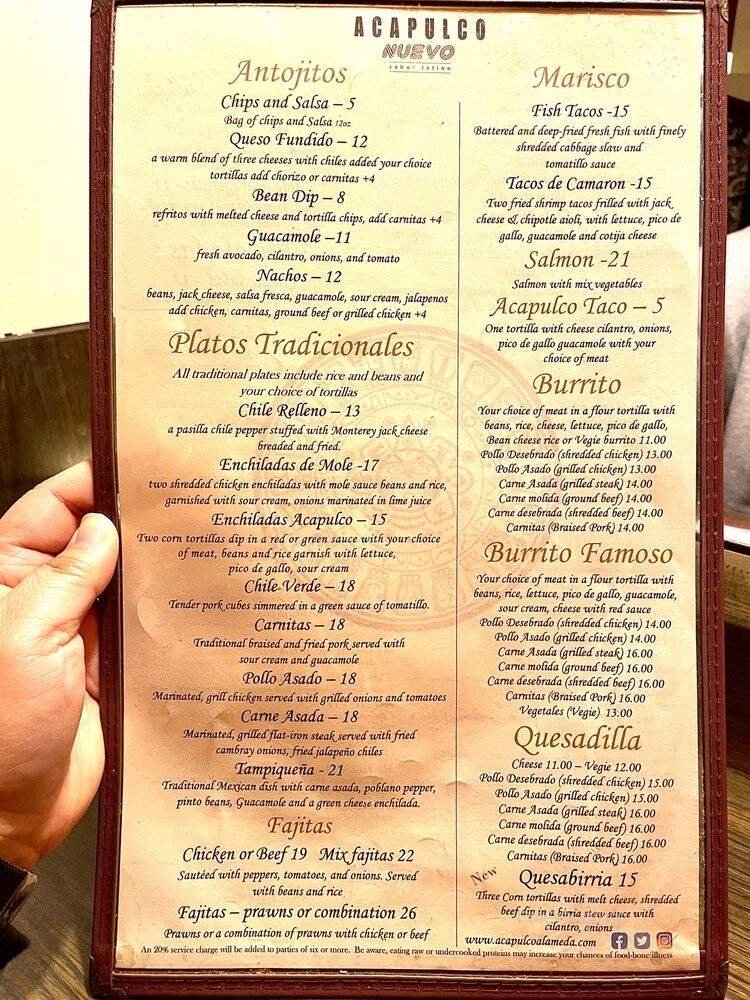 ACAPULCO
NUEVO
sabor latino
Antojitos
Chips and Salsa – 5
Bag of chips and Salsa 12oz
Queso Fundido – 12
a warm blend of three cheeses with chiles added your choice
tortillas add chorizo or carnitas +4
Bean Dip – 8
refritos with melted cheese and tortilla chips, add carnitas +4
Guacamole –11
fresh avocado, cilantro, onions, and tomato
Nachos – 12
beans, jack cheese, salsa fresca, guacamole, sour cream, jalapenos
add chicken, carnitas, ground beef or grilled chicken +4
Platos Tradicionales
All traditional plates include rice and beans and
your choice of tortillas
Chile Relleno – 13
a pasilla chile pepper stuffed with Monterey jack cheese
breaded and fried.
Enchiladas de Mole -17
two shredded chicken enchiladas with mole sauce beans and rice,
garnished with sour cream, onions marinated in lime juice
Enchiladas Acapulco – 15
Two corn tortillas dip in a red or green sauce with your choice
of meat, beans and rice garnish with lettuce,
pico de gallo, sour cream
Chile Verde – 18
Tender pork cubes simmered in a green sauce of tomatillo.
Carnitas – 18
Traditional braised and fried pork served with
sour cream and guacamole
Pollo Asado – 18
Marinated, grill chicken served with grilled onions and tomatoes
Carne Asada – 18
Marinated, grilled flat-iron steak served with fried
cambray onions, fried jalapeño chiles
Tampiqueña - 21
Traditional Mexican dish with carne asada, poblano pepper,
pinto beans, Guacamole and a green cheese enchilada.
Fajitas
Chicken or Beef 19 Mix fajitas 22
Sautéed with peppers, tomatoes, and onions. Served
with beans and rice
Fajitas – prawns or combination 26
Prawns or a combination of prawns with chicken or beef
Marisco
Fish Tacos -15
Battered and deep-fried fresh fish with finely
shredded cabbage slaw and
tomatillo sauce
Tacos de Camaron -15
Two fried shrimp tacos frilled with jack
cheese & chipotle aioli, with lettuce, pico de
gallo, guacamole and cotija cheese
Salmon -21
Salmon with mix vegetables
Acapulco Taco – 5
One tortilla with cheese cilantro, onions,
pico de gallo guacamole with your
choice of meat
Burrito
Your choice of meat in a flour tortilla with
beans, rice, cheese, lettuce, pico de gallo,
Bean cheese rice or Vegie burrito 11.00
Pollo Desebrado (shredded chicken) 13.00
Pollo Asado (grilled chicken) 13.00
Carne Asada (grilled steak) 14.00
Carne molida (ground beef) 14.00
Carne desebrada (shredded beef) 14.00
Carnitas (Braised Pork) 14.00
Burrito Famoso
Your choice of meat in a flour tortilla with
beans, rice, lettuce, pico de gallo, guacamole,
sour cream, cheese with red sauce
Pollo Desebrado (shredded chicken) 14.00
Pollo Asado (grilled chicken) 14.00
Carne Asada (grilled steak) 16.00
Carne molida (ground beef) 16.00
Carne desebrada (shredded beef) 16.00
Carnitas (Braised Pork) 16.00
Vegetales (Vegie) 13:00
Quesadilla
Cheese 11.00 – Vegie 12.00
Pollo Desebrado (shredded chicken) 15.00
Pollo Asado (grilled chicken) 15.00
Carne Asada (grilled steak) 16.00
Carne molida (ground beef) 16.00
Carne desebrada (shredded beef) 16.00
Carnitas (Braised Pork) 16.00
New Quesabirria 15
Three Corn tortillas with melt cheese, shredded
beef dip in a birria stew sauce with
cilantro, onions
www.acapulcoalameda.com
An 20% service charge will be added to parties of six or more. Be aware, eating raw or undercooked proteins may increase your chances of food-bone illness